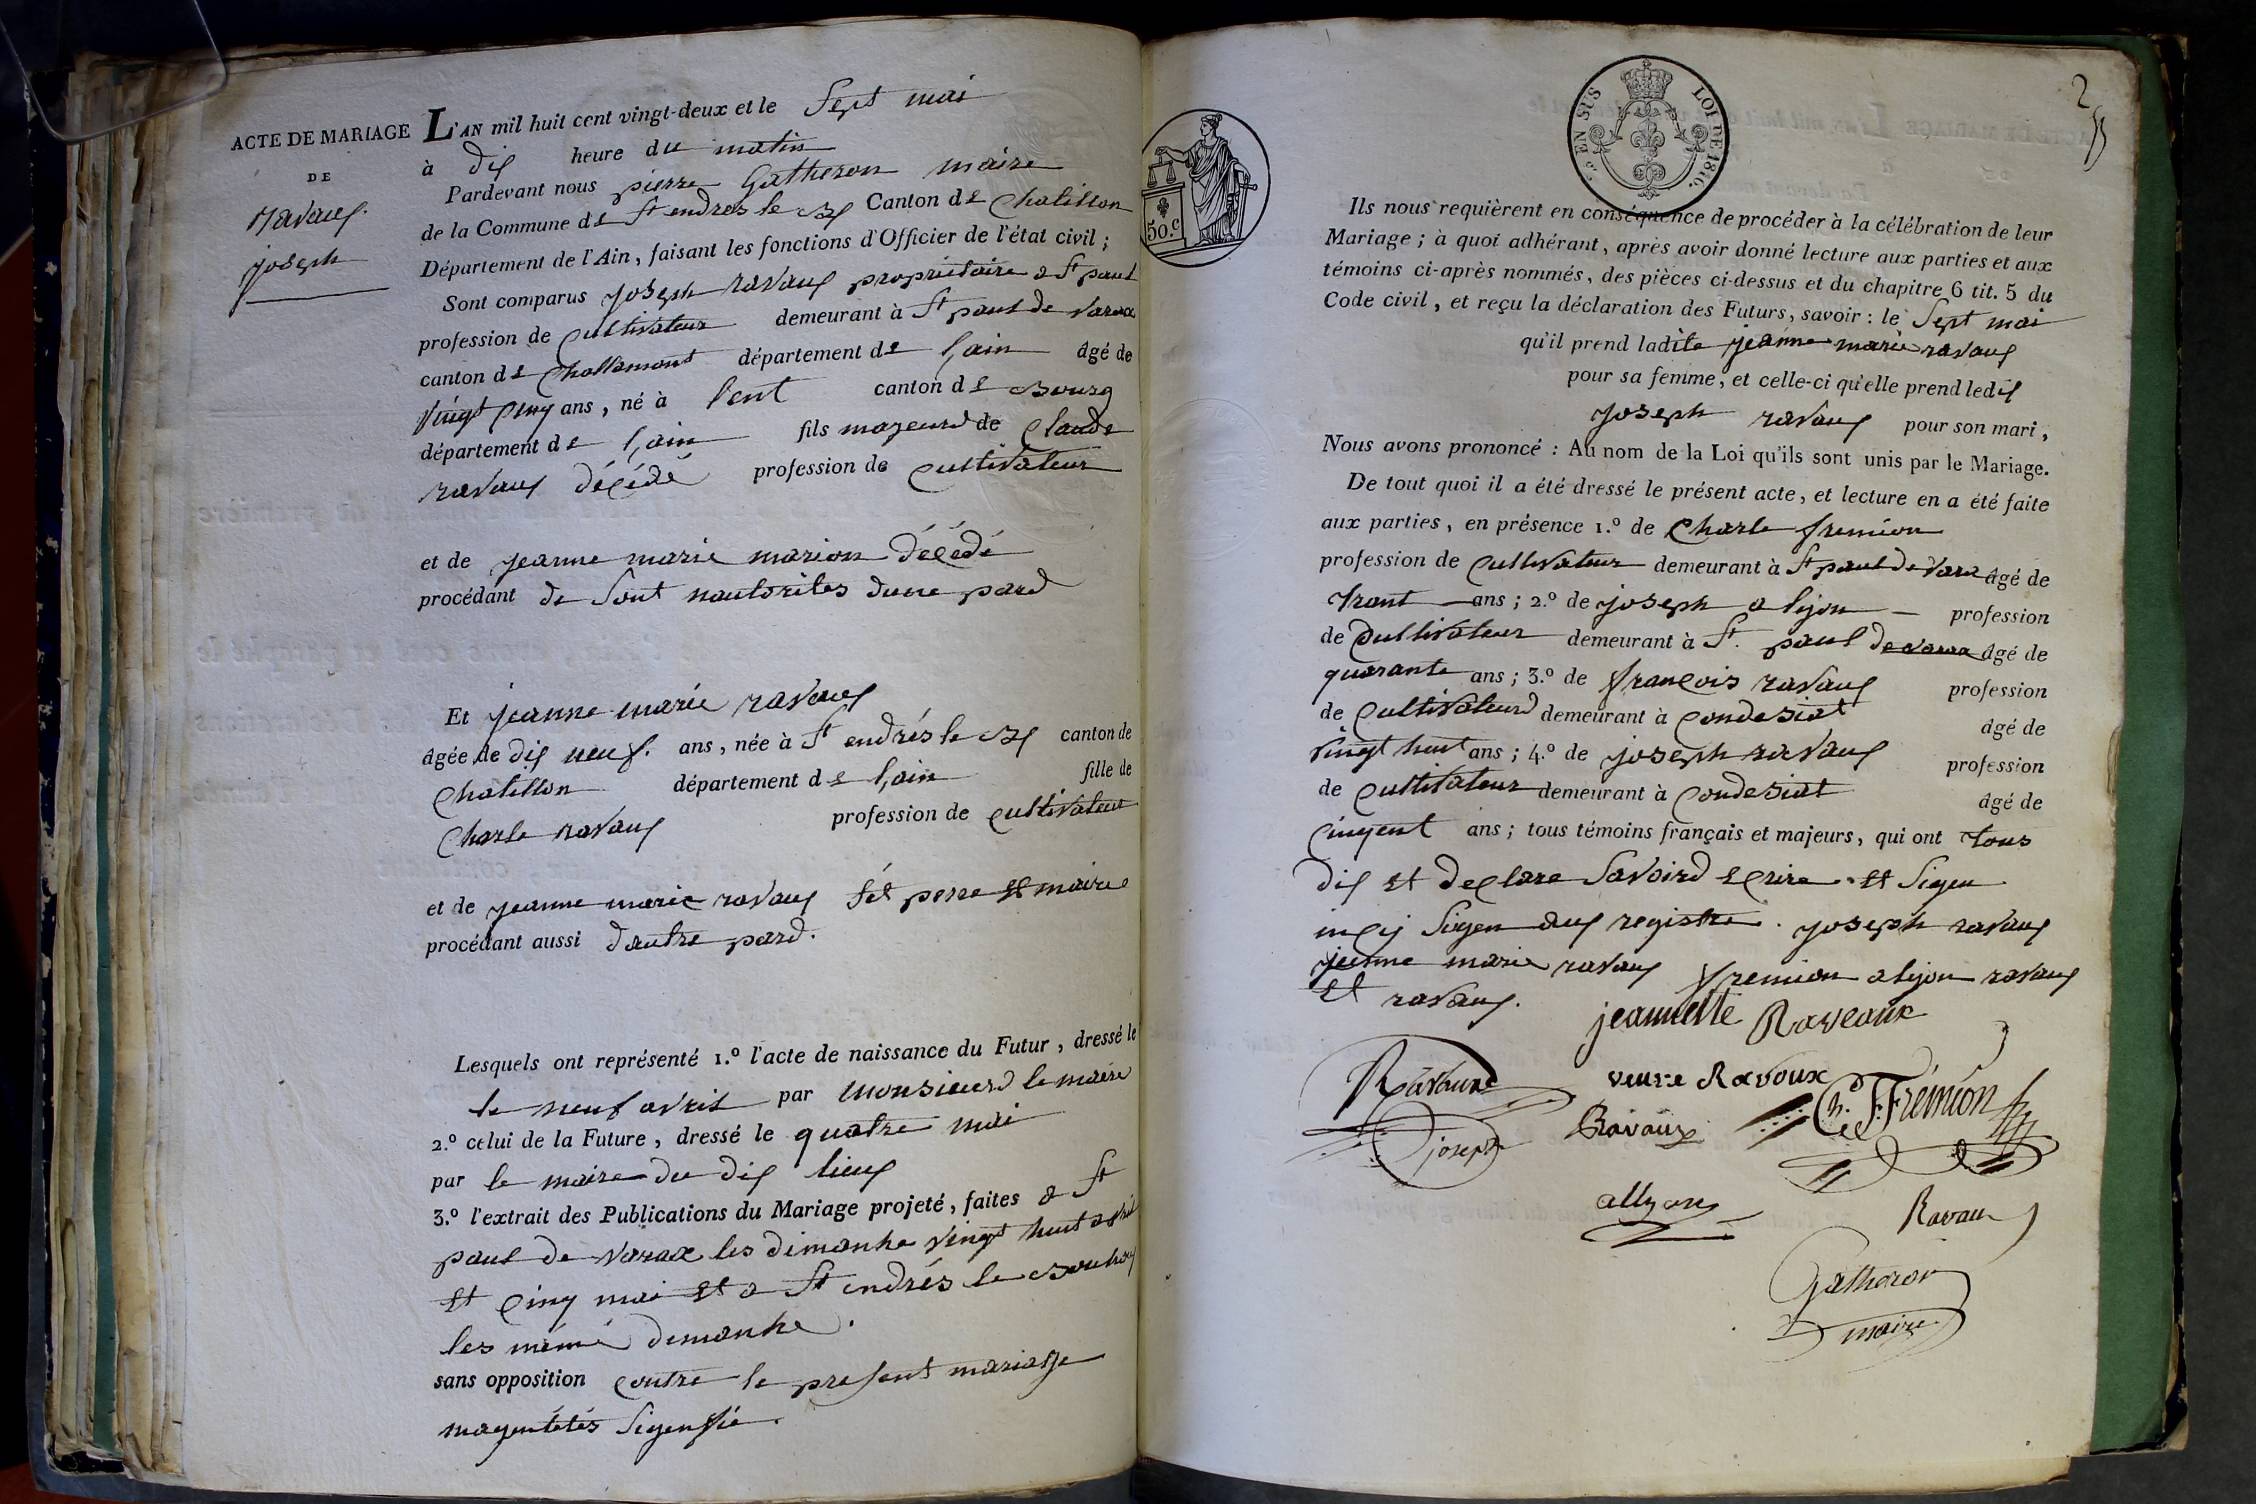 ACTE DE MARIAGE
DE
ravaux
joseph
L'AN mil huit cent vingt-deux et le Sept mai
à dix heure du matin
Pardevant nous pierre Gatheron maire
de la Commune de St endres le Bx Canton de Chatillon
Département de l'Ain, faisant les fonctions d'Officier de l'état civil ;
Sont comparus joseph ravaux propriétaire a St paul
profession de cultivateur demeurant à St paul de varax
canton de Challamont département de l,ain âgé de
vingt cinq ans, né à lent canton de Bourg
département de l,ain fils majeurd de Claude
ravaux décédé profession de cultivateur
et de jeanne marie marion décédé
procédant de sont nautorites dune pard
Et jeanne marie ravaux
âgée de dix neuf. ans, née à St endrés le Bx canton de
Chatillon département de l,ain fille de
Charle ravaux profession de cultivateur
et de jeanne marie ravaux set perre et maire
procédant aussi dautre pard.
Lesquels ont représenté 1.º l'acte de naissance du Futur, dressé le
le neuf avril par monsieurd le maire
2.º celui de la Future, dressé le quatre mai
par le maire du dix lieux
3.º l'extrait des Publications du Mariage projeté, faites a St
paul de varax les dimanhe vingt huit avril
et cinq mai et a St endrés le Bouhoux
les mémé dimanhe.
sans opposition contre le present mariage
2
50.C
EN SUS LOI DE 1816.
Ils nous requièrent en conséquence de procéder à la célébration de leur
Mariage ; à quoi adhérant, après avoir donné lecture aux parties et aux
témoins ci-après nommés, des pièces ci-dessus et du chapitre 6 tit. 5 du
Code civil, et reçu la déclaration des Futurs, savoir : le Sept mai
qu'il prend ladite jeanne marie ravaux
pour sa femme, et celle-ci qu'elle prend ledix
joseph ravaux pour son mari,
Nous avons prononcé : Au nom de la Loi qu'ils sont unis par le Mariage.
De tout quoi il a été dressé le présent acte, et lecture en a été faite
aux parties, en présence 1.º de Charle fremion
profession de cultivateur demeurant à St paul de vara âgé de
trant ans ; 2.º de joseph alijon profession
de cultivateur demeurant à St. paul de varax âgé de
quarante ans ; 3.º de françois ravaux profession
de cultivateurd demeurant à condesiat âgé de
vingt huit ans ; 4.º de joseph ravaux profession
de cultivateur demeurant à condesiat âgé de
cinqent ans ; tous témoins français et majeurs, qui ont tous
dix et declare savoird ecrire et sigen
incy sigen aux registre. joseph ravaux
jeanne marie ravaux fremion alijon ravaux
et ravaux.
jeannette Raveaux
Ravaux joseph
veuve Ravoux
Ravaux
Ch. F. Frémion
allyon
Ravaux
Gatheron
maire